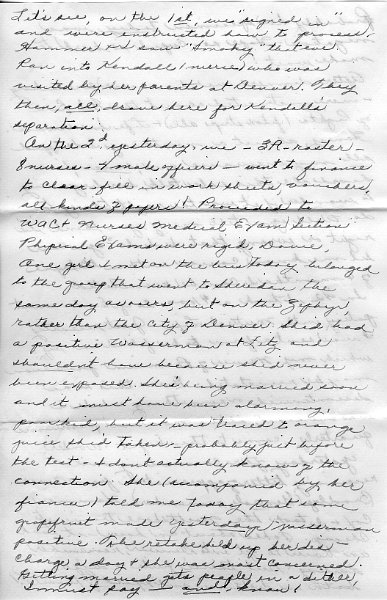 Let's see, on the 1st, we "signed in"
and were instructed how to process.
Hammer & I saw "Smoky" that eve.
Ran into Kendall (nurse) who was
visited by her parents at Denver. They
then, all, drove here for Kendell's
separation.
On the 2d, yesterday, we – 3R-roster –
8 nurses – 7 male officers – went to finance
to clear – fill in work sheets, vouchers,
all kinds of papers! Proceeded to
WAC & Nurses Medical Exam Section
Physical Exams were rigid, Dovie.
One girl I met on the bus today belonged
to the group that went to Sheridan the
same day as ours, but on the Zephyr,
rather than the City of Denver. She'd had
a positive Wasserman at and
shouldn't have because she'd never
been exposed. She's being married soon
and it must have been alarming,
poor kid, but it was traced to orange
juice she'd taken – probably just before
the test – I don't actually know of the
connection. She (accompanied by her
fiance) told me today that some
grapefruit made yesterday's Wasserman
positive. The retake held up her dis-
charge a day & she was most concerned.
Getting married gets people in a dither,
I must say – and I know!